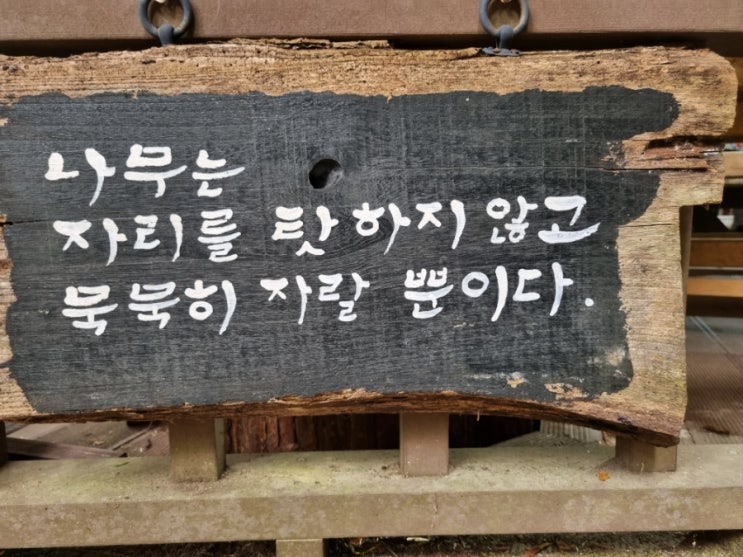 나무는
자리를 탓하지 않고
묵묵히 자랄 뿐이다.